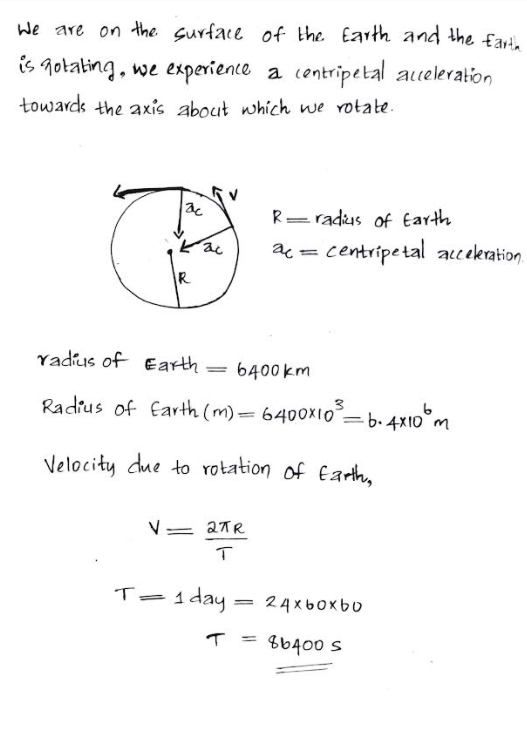 We are on the surface of the Earth and the Earth
is rotating, we experience a centripetal acceleration
towards the axis about which we rotate.
ac
V
ac
R
R = radius of Earth
ac = centripetal acceleration.
radius of Earth = 6400 km
Radius of Earth (m) = 6400×10³ = 6.4×10⁶ m
Velocity due to rotation of Earth,
V = 2πR
T
T = 1 day = 24×60×60
T = 86400 s